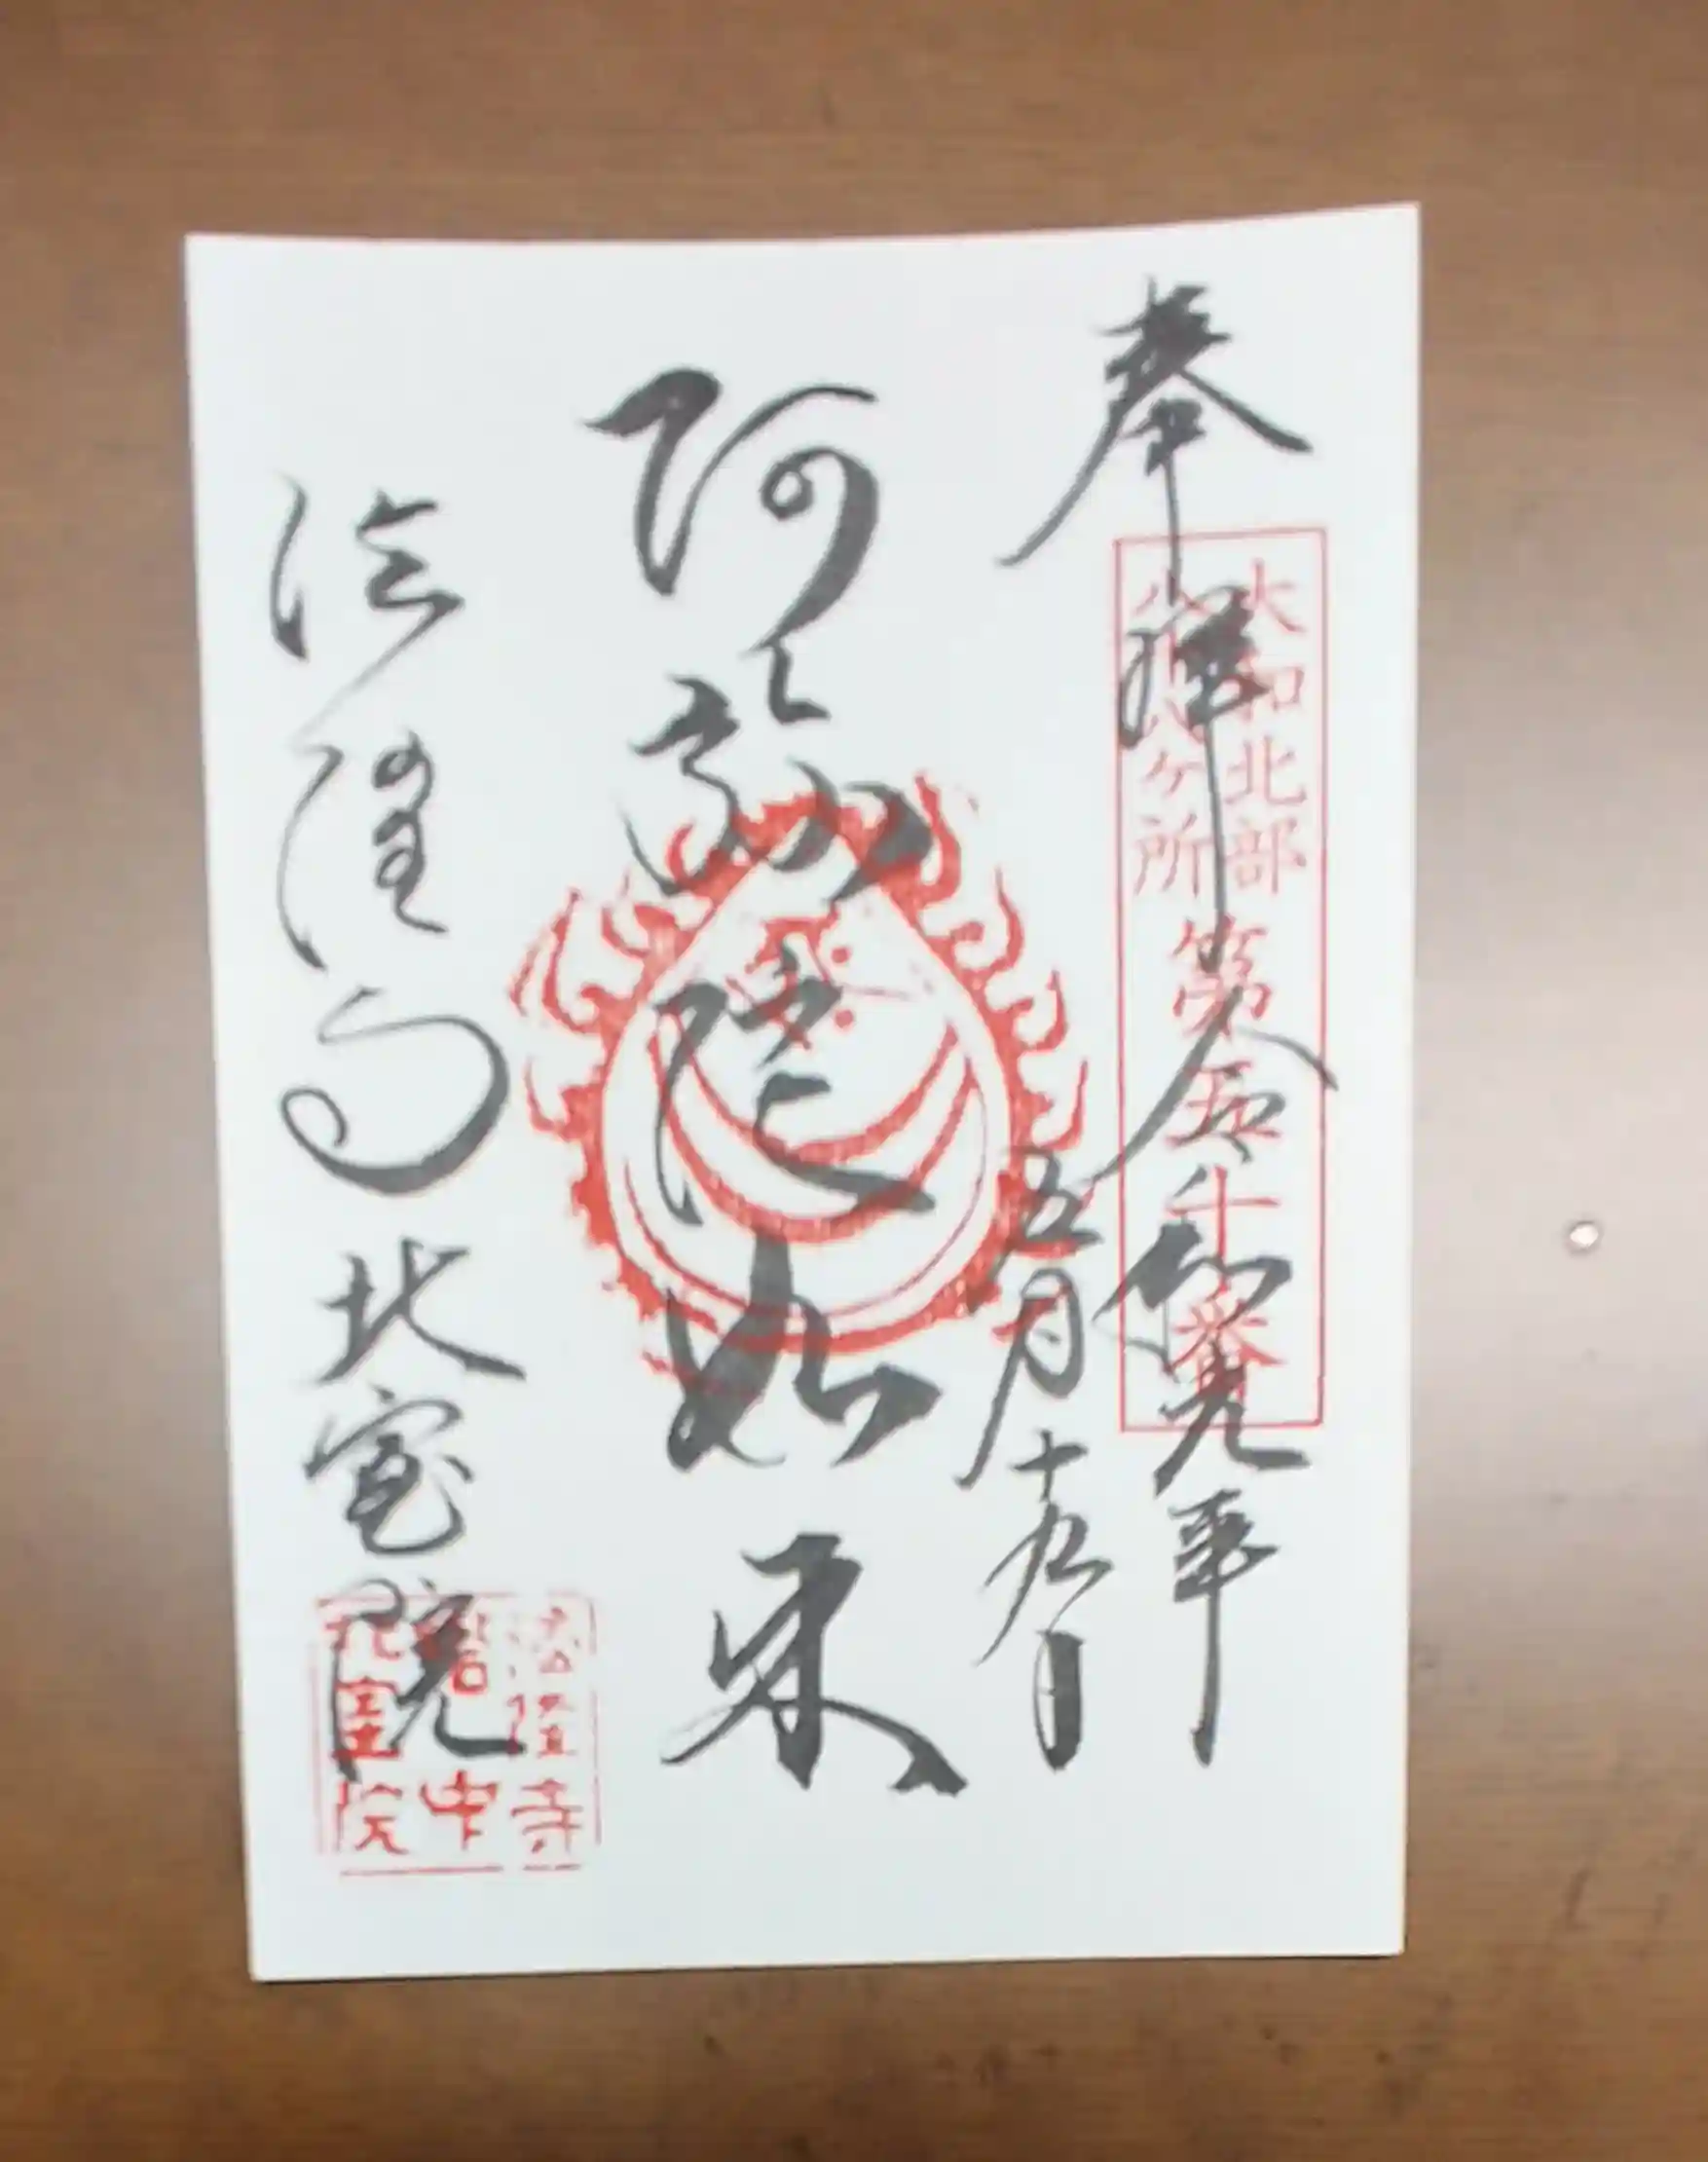 奉拝
令和元年
五月十九日
大和北部
八十八ヶ所
第五十番
阿弥陀如来
法隆寺北室院
法隆寺
塔中
北室院